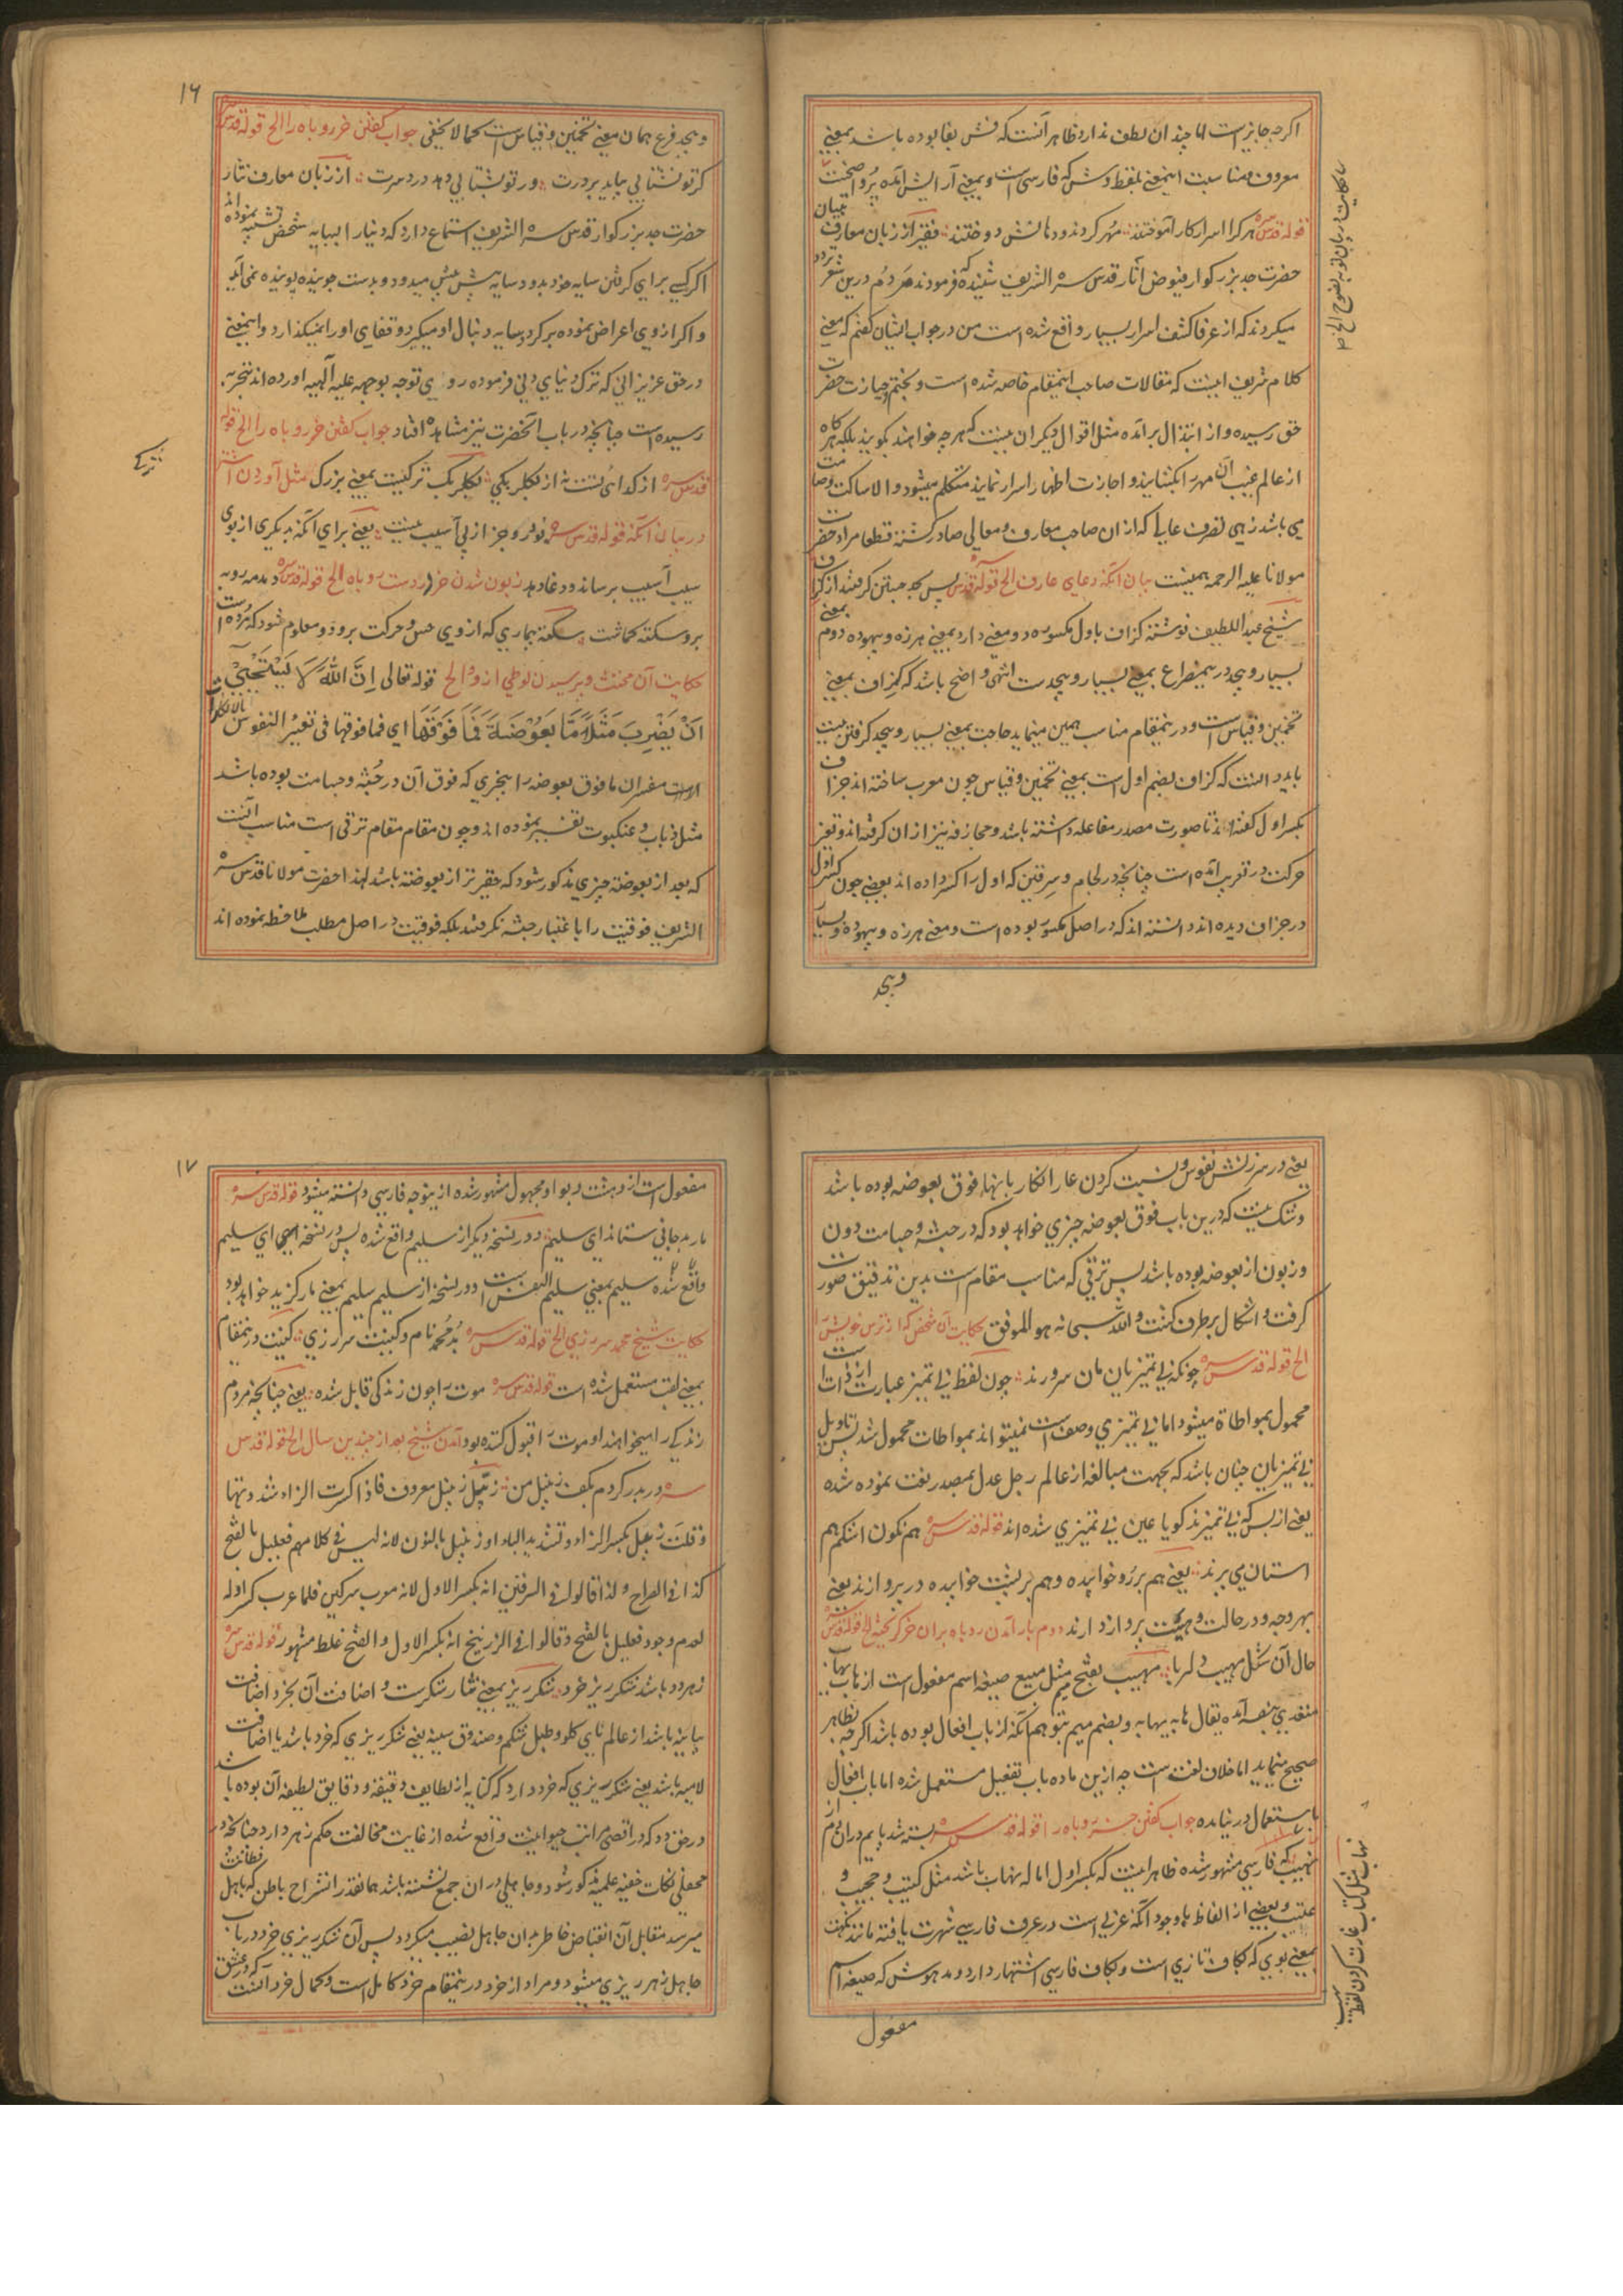 اگرچه جایز است اما چندان لطف ندارد ظاهر آنست که فش بفا بوده باشد بمعنی
معروف و مناسبت اینمعنی بلفظ وش که فارسی است و بمعنی آرایش آمده پر واضحست
قوله قدس سره هر کرا اسرار کار آموختند مهر کردند و دهانش دوختند فقیر از زبان معارف بیان
حضرت جد بزرگوار فیوض آثار قدس سره الشریف شنیده که فرمودند مردم درین شعر تردد
میکردند که از عرفا کشف اسرار بسیار واقع شده است من در جواب ایشان گفتم که معنی
کلام شریف اینست که مقالات صاحب اینمقام خاصه شده است و بختم و اجازت حضرت
حق رسیده و از ابتذال برآمده مثل اقوال دیگران نیست که هر چه خواهند بگویند بلکه هر گاه
از عالم غیب آن مهر بگشایند و اجازت اظهار اسرار نمایند متکلم میشود و الا ساکت و صامت
می باشد زهی تصرف عالی که از ان صاحب معارف و معالی صادر گشته قطعا مراد حضرت
مولانا علیه الرحمه همینست بیان آنکه دعای عارف الخ قوله قدس سره پس بجد جستن گرفتند از گزاف
شیخ عبد اللطیف نوشته گزاف باول مکسور دو معنی دارد بمعنی هرزه و بیهوده دوم بمعنی
بسیار و بیحد درینمصراع بمعنی بسیار و بیحدست انتهی واضح باشد که گزاف بمعنی
تخمین و قیاس است و درینمقام مناسب همین مینماید حاجت بمعنی بسیار و بیحد گرفتن نیست
باید دانست که گزاف بضم اول است بمعنی تخمین و قیاس چون معرب ساخته اند جزاف
بکسر اول گفته اند تا صورت مصدر مفاعله داشته باشد و مجازفه نیز از ان گرفته اند و تغیر
حرکت در تعریب آمده است چنانچه در لجام و سرقین که اول را کسر داده اند بعضی چون کسر اول
در جزاف دیده اند دانسته اند که در اصل مکسور بوده است و معنی هرزه و بیهوده و بسیار
وبیحد
وبیحد فرع همان معنی تخمین و قیاس است کما لا یخفی جواب گفتن خر روباه را الخ قوله قدس سره
گر تو نشتابی بیاید بر درت ور تو بشتابی دهد درد سرت از زبان معارف نثار
حضرت جد بزرگوار قدس سره الشریف استماع دارد که دنیا را بسایه شخص تشبیه نموده اند
اگر کسی برای گرفتن سایه خود بدود سایه پیش پیش میدود و بدست جوینده پوینده نمی آید
و اگر از وی اعراض نموده برگردد سایه دنبال او میگیرد و قفای او را نمیگذارد و اینمعنی
در حق عزیزانی که ترک دنیای دنی فرموده روی توجه بوجهه علیه آلهیه آورده اند بتجربه
رسیده است چنانچه در باب آنحضرت نیز مشاهده افتاد جواب گفتن خر روباه را الخ قوله
قدس سره از گدائی تست نه از بکلربکی بکلربک ترکیست بمعنی بزرگ مثل آوردن اشتر
در بیان آنکه قوله قدس سره
سیب آسیب برساند و دغا دهد زبون شدن خر در دست روباه الخ قوله قدس سره دمدمه روبه
برو سکته گماشت سکته بیماری که از وی حس و حرکت برود و معلوم شود که مرده است
حکایت آن مخنث و پرسیدن لوطی از و الخ قوله تعالی إِنَّ اللَّهَ لَا يَسْتَحْيِي
أَنْ يَضْرِبَ مَثَلًا مَا بَعُوضَةً فَمَا فَوْقَهَا ای فما فوقها فی تغیر النفوس بالانکار
است مفسران ما فوق بعوضه را بچیزی که فوق آن در جثه و جسامت بوده باشد
مثل ذباب و عنکبوت تفسیر نموده اند و چون مقام مقام ترقی است مناسب آنست
که بعد از بعوضه چیزی مذکور شود که حقیرتر از بعوضه باشد لهذا حضرت مولانا قدس سره
الشریف فوقیت را باعتبار جثه نگرفتند بلکه فوقیت در اصل مطلب ملاحظه نموده اند
۱۶
یعنی در سرزنش نفوس و نسبت کردن عار انکار بانها فوق بعوضه بوده باشد
و شک نیست که درین باب فوق بعوضه چیزی خواهد بود که در جثه و جسامت دون
و زبون از بعوضه بوده باشد پس ترقی که مناسب مقام است بدین تدقیق صورت
گرفت و اشکال برطرف گشت والله سبحانه هو الموفق حکایت آن شخص که از ترس خویشتن
الخ قوله قدس سره چونکه بی تمیزیان مان سرورند چون لفظ بی تمیز عبارت از ذات است
محمول بمواطاة میشود اما بی تمیزی وصف است نمیتواند بمواطات محمول شد پس تاویل
بی تمیزیان چنان باشد که بجهت مبالغه از عالم رجل عدل بمصدر نعت نموده شده
یعنی از بس که بی تمیزند گویا عین بی تمیزی شده اند قوله قدس سره هم نگون اشکم هم
استان می پرند یعنی هم بر رو خوابیده و هم بر پشت خوابیده در پروازند یعنی
بهر وجه و در حالت و هیئت پرواز دارند دوم بار آمدن روباه بران خر گریخته الخ قوله قدس سره
حال آن شکل مهیب دلربا مهیب بفتح میم مثل مبیع صیغه اسم مفعول است از هاب یهاب
متعدی بنفسه آمده یقال هابه یهابه و بضم میم بتوهم آنکه از باب افعال بوده باشد اگرچه بظاهر
صحیح مینماید اما خلاف لغت است چه ازین ماده باب تفعیل مستعمل شده اما باب افعال
باستعمال در نیامده جواب گفتن خر روباه را قوله قدس سره بسته شد پایم در آن دم از
نهیب که فارسی مشهور شده ظاهرا اینست که بکسر اول اماله نهاب باشد مثل کتیب و حجیب و
عتیب و بعضی از الفاظ با وجود آنکه عربی است در عرف فارسی شهرت یافته مانند نکهت
بمعنی بوی که بکاف تازی است و بکاف فارسی اشتهار دارد و مدهوش که صیغه اسم
مفعول
مفعول است از دهشت و بواو مجهول مشهور شده ازینوجه فارسی دانسته میشود قوله قدس سره
مار بد جانی ستاند ای سلیم و در نسخه دیگر از سلیم واقع شده پس در نسخه ای سلیم
واقع شده سلیم بمعنی سلیم النفس است و در نسخه از سلیم سلیم بمعنی مار گزیده خواهد بود
حکایت شیخ محمد سررزی الخ قوله قدس سره بد محمد نام و کنیت سررزی کنیت درینمقام
بمعنی لقب مستعمل شده است قوله قدس سره موت را چون زندگی قابل شده یعنی چنانچه مردم
زندگی را میخواهند او موت را قبول کرده بود آمدن شیخ بعد از چندین سال الخ قوله قدس
سره در بدر گردم بکف زنبیل من زنبیل معروف فاذا کسرت الزاء شددتها
و قلت زبیل بکسر الزاء و تشدید الباء او زنبیل بالنون لانه لیس فی کلامهم فعلیل بالفتح
کذا فی الصراح و لذا قالوا فی السرقین انه بکسر الاول لانه معرب سرکین فلما عرب کسر اوله
لعدم وجود فعلیل بالفتح و قالوا فی الزرنیخ انه بکسر الاول و الفتح غلط مشهور قوله قدس سره
زهر دد باشد شکرریز خرد شکرریز بمعنی نثار شکرست و اضافت آن بخرد اضافت
بیانیه باشد از عالم نای گلو و طبل شکم و صندوق سینه یعنی شکرریزی که خرد باشد یا اضافت
لامیه باشد یعنی شکرریزی که خرد دارد که کنایه از لطایف دقیقه و دقایق لطیفه آن بوده باشد
در حق دد که در اقصی مراتب حیوانیت واقع شده از غایت مخالفت حکم زهر دارد چنانچه در
محفلی نکات خفیه علمیه مذکور شود و جاهلی در ان جمع نشسته باشد همانقدر انشراح باطن که باهل فطانت
میرسد مقابل آن انقباض خاطر بدان جاهل نصیب میگردد پس آن شکرریزی خرد در باب
جاهل زهرریزی میشود و مراد از خرد درینمقام خرد کامل است و کمال خرد آنست که در عشق
۱۷